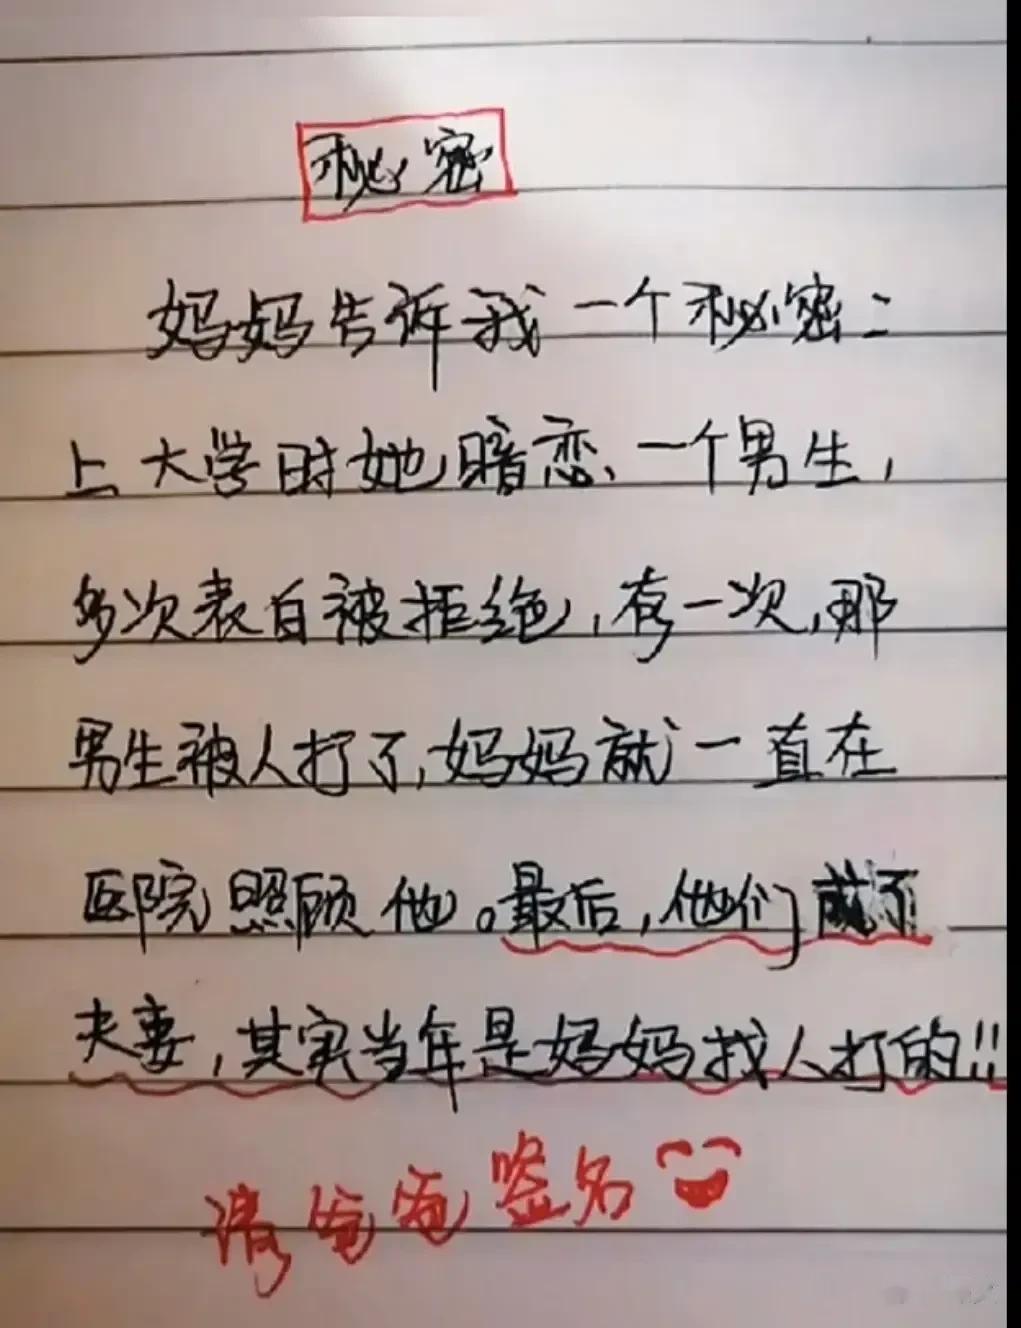 秘密
妈妈告诉我一个秘密:
上大学时她暗恋一个男生,
多次表白被拒绝,有一次,那
男生被人打了,妈妈就一直在
医院照顾他。最后,他们成了
夫妻,其实当年是妈妈找人打的!!
请爸爸签名